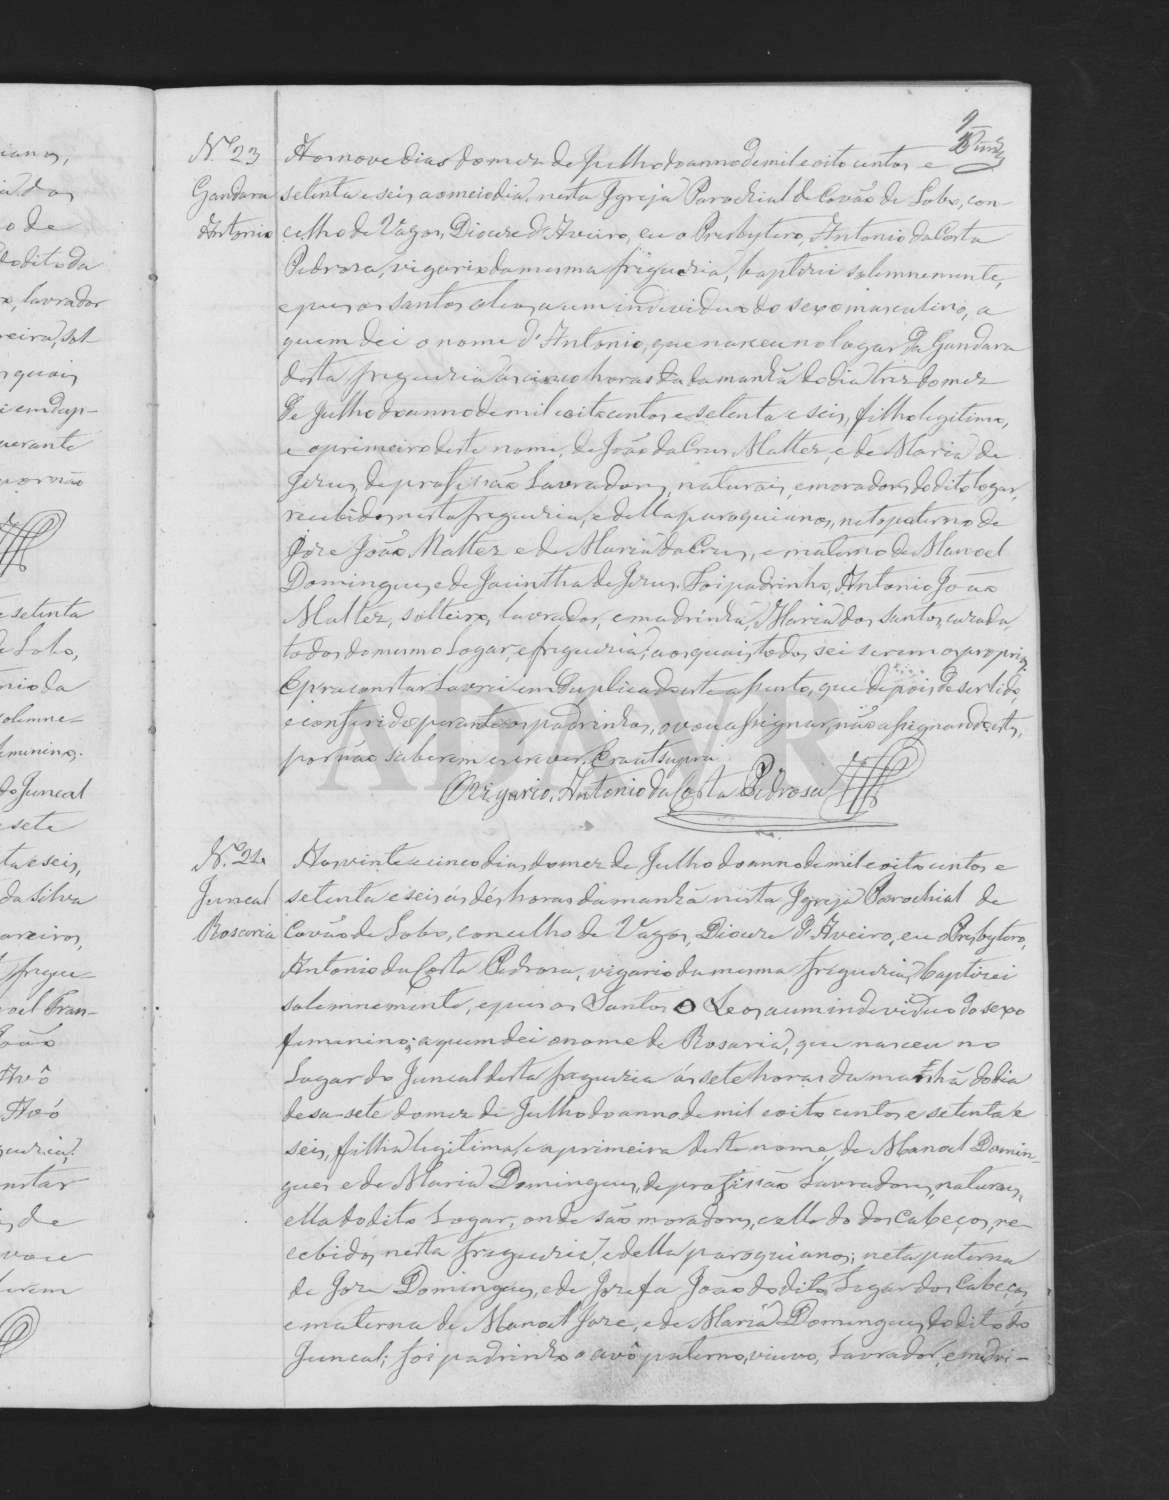 9
Nº 23
Gandara
Antonio
Aos nove dias do mez de Julho do anno de mil e oito centos e
setenta e seis ao meio dia, nesta Igreja Parochial de Covão de Lobo, con-
celho de Vagos, Diocese d'Aveiro, eu o Presbytero, Antonio da Costa
Pedrosa, vigario da mesma freguezia, baptizei solemnemente,
e puz os santos oleos a um individuo do sexo masculino, a
quem dei o nome d'Antonio, que nasceu no logar da Gandara
desta freguezia ás cinco horas da da manhã do dia trez do mez
de Julho do anno de mil e oito centos e setenta e seis, filho legitimo,
e o primeiro deste nome, de João da Cruz Malter, e de Maria de
Jesus, de profissão Lavradores, naturais, e moradores do dito logar,
recebidos nesta freguezia, e della paroquianos, neto paterno de
Joze João Malter e de Maria da Cruz, e materno de Manoel
Domingues e de Jacintha de Jesus. Foi padrinho, Antonio João
Malter, solteiro, lavrador, e madrinha, Maria dos Santos, cazada,
todos do mesmo Logar, e freguezia; aos quais todos sei serem os proprios.
E para constar lavrei em duplicado este assento, que depois de ser lido
e conferido perante os padrinhos, o vou assignar, não assignando estes,
por não saberem escrever. Era ut supra.
O Vigario, Antonio da Costa Pedrosa
Nº 24
Juncal
Rosaria
Aos vinte e cinco dias do mez de Julho do anno de mil e oito centos e
setenta e seis ás dés horas da manhã nesta Igreja Parochial de
Covão de Lobo, concelho de Vagos, Diocese d'Aveiro, eu o Presbytero,
Antonio da Costa Pedrosa, vigario da mesma freguezia, baptizei
solemnemente, e puz os Santos Oleos a um individuo do sexo
femenino; a quem dei o nome de Rosaria, que nasceu no
Lugar do Juncal desta freguezia ás sete horas da manhã do dia
desa-sete do mez de Julho do anno de mil e oito centos e setenta e
seis, filha legitima, e a primeira deste nome, de Manoel Domin-
gues e de Maria Domingues, de profissão Lavradores, naturaes,
ella do dito Logar, onde são moradores, e elle do dos Cabeços, re-
cebidos nesta freguezia, e della paroquianos; neta paterna
de Joze Domingues, e de Jozefa João do dito Lugar dos Cabeços,
e materna de Manoel Joze, e de Maria Domingues do dito do
Juncal; foi padrinho o avô paterno, viuvo, Lavrador, e madri-
ADAVR